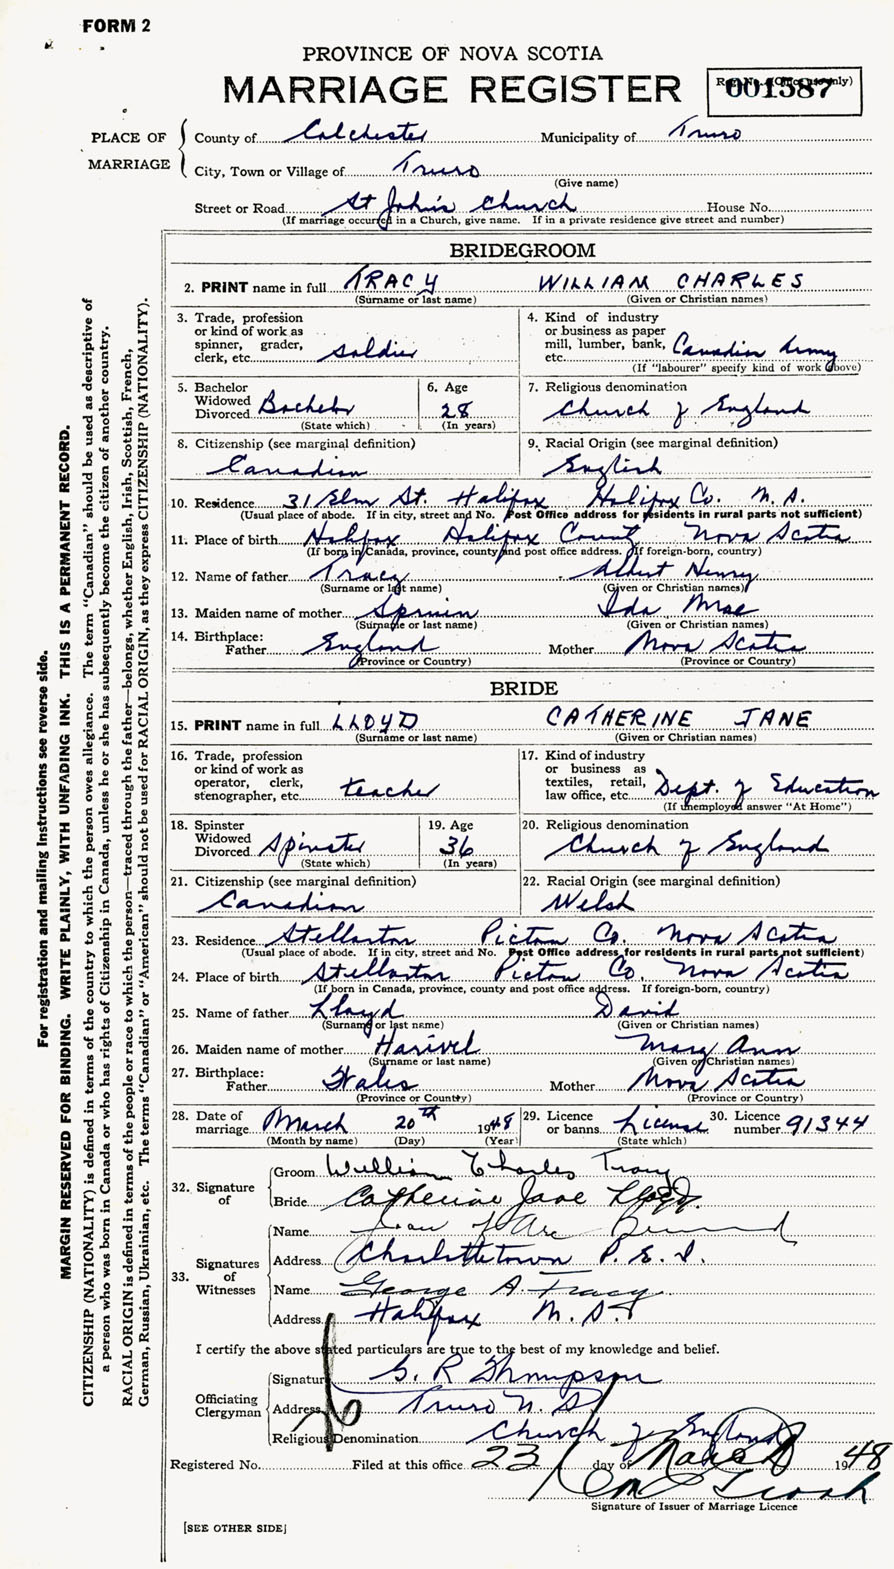 FORM 2
PROVINCE OF NOVA SCOTIA
MARRIAGE REGISTER
Reg. No. (Office use only)
001587
PLACE OF MARRIAGE
County of Colchester Municipality of Truro
City, Town or Village of Truro
(Give name)
Street or Road St John's Church House No.
(If marriage occurred in a Church, give name. If in a private residence give street and number)
BRIDEGROOM
2. PRINT name in full TRACY WILLIAM CHARLES
(Surname or last name) (Given or Christian names)
3. Trade, profession or kind of work as spinner, grader, clerk, etc. soldier
4. Kind of industry or business as paper mill, lumber, bank, etc. Canadian Army
(If "labourer" specify kind of work above)
5. Bachelor Widowed Divorced Bachelor
(State which)
6. Age 28
(In years)
7. Religious denomination
Church of England
8. Citizenship (see marginal definition)
Canadian
9. Racial Origin (see marginal definition)
English
10. Residence 31 Elm St. Halifax Halifax Co. N.S.
(Usual place of abode. If in city, street and No. Post Office address for residents in rural parts not sufficient)
11. Place of birth Halifax Halifax County Nova Scotia
(If born in Canada, province, county and post office address. If foreign-born, country)
12. Name of father Tracy Albert Henry
(Surname or last name) (Given or Christian names)
13. Maiden name of mother Ida Mae
(Surname or last name) (Given or Christian names)
14. Birthplace:
Father England Mother Nova Scotia
(Province or Country) (Province or Country)
BRIDE
15. PRINT name in full LLOYD CATHERINE JANE
(Surname or last name) (Given or Christian names)
16. Trade, profession or kind of work as operator, clerk, stenographer, etc. teacher
17. Kind of industry or business as textiles, retail, law office, etc. Dept. of Education
(If unemployed answer "At Home")
18. Spinster Widowed Divorced Spinster
(State which)
19. Age 36
(In years)
20. Religious denomination
Church of England
21. Citizenship (see marginal definition)
Canadian
22. Racial Origin (see marginal definition)
Welsh
23. Residence Stellarton Pictou Co. Nova Scotia
(Usual place of abode. If in city, street and No. Post Office address for residents in rural parts not sufficient)
24. Place of birth Stellarton Pictou Co. Nova Scotia
(If born in Canada, province, county and post office address. If foreign-born, country)
25. Name of father Lloyd David
(Surname or last name) (Given or Christian names)
26. Maiden name of mother Harivel Mary Ann
(Surname or last name) (Given or Christian names)
27. Birthplace:
Father Wales Mother Nova Scotia
(Province or Country) (Province or Country)
28. Date of marriage March 20th 1948
(Month by name) (Day) (Year)
29. Licence or banns License
(State which)
30. Licence number 91344
32. Signature of
Groom William Charles Tracy
Bride Catherine Jane Lloyd
33. Signatures of Witnesses
Name Jean d'Arc
Address Charlottetown P.E.I.
Name George A. Tracy
Address Halifax N.S.
I certify the above stated particulars are true to the best of my knowledge and belief.
Officiating Clergyman
Signature G. R Thompson
Address Truro N.S.
Religious Denomination Church of England
Registered No. Filed at this office 23 day of March 1948
Signature of Issuer of Marriage Licence
[SEE OTHER SIDE]
For registration and mailing instructions see reverse side.
MARGIN RESERVED FOR BINDING. WRITE PLAINLY, WITH UNFADING INK. THIS IS A PERMANENT RECORD.
CITIZENSHIP (NATIONALITY) is defined in terms of the country to which the person owes allegiance. The term "Canadian" should be used as descriptive of
a person who was born in Canada or who has rights of Citizenship in Canada, unless he or she has subsequently become the citizen of another country.
RACIAL ORIGIN is defined in terms of the people or race to which the person—traced through the father—belongs, whether English, Irish, Scottish, French,
German, Russian, Ukrainian, etc. The terms "Canadian" or "American" should not be used for RACIAL ORIGIN, as they express CITIZENSHIP (NATIONALITY).